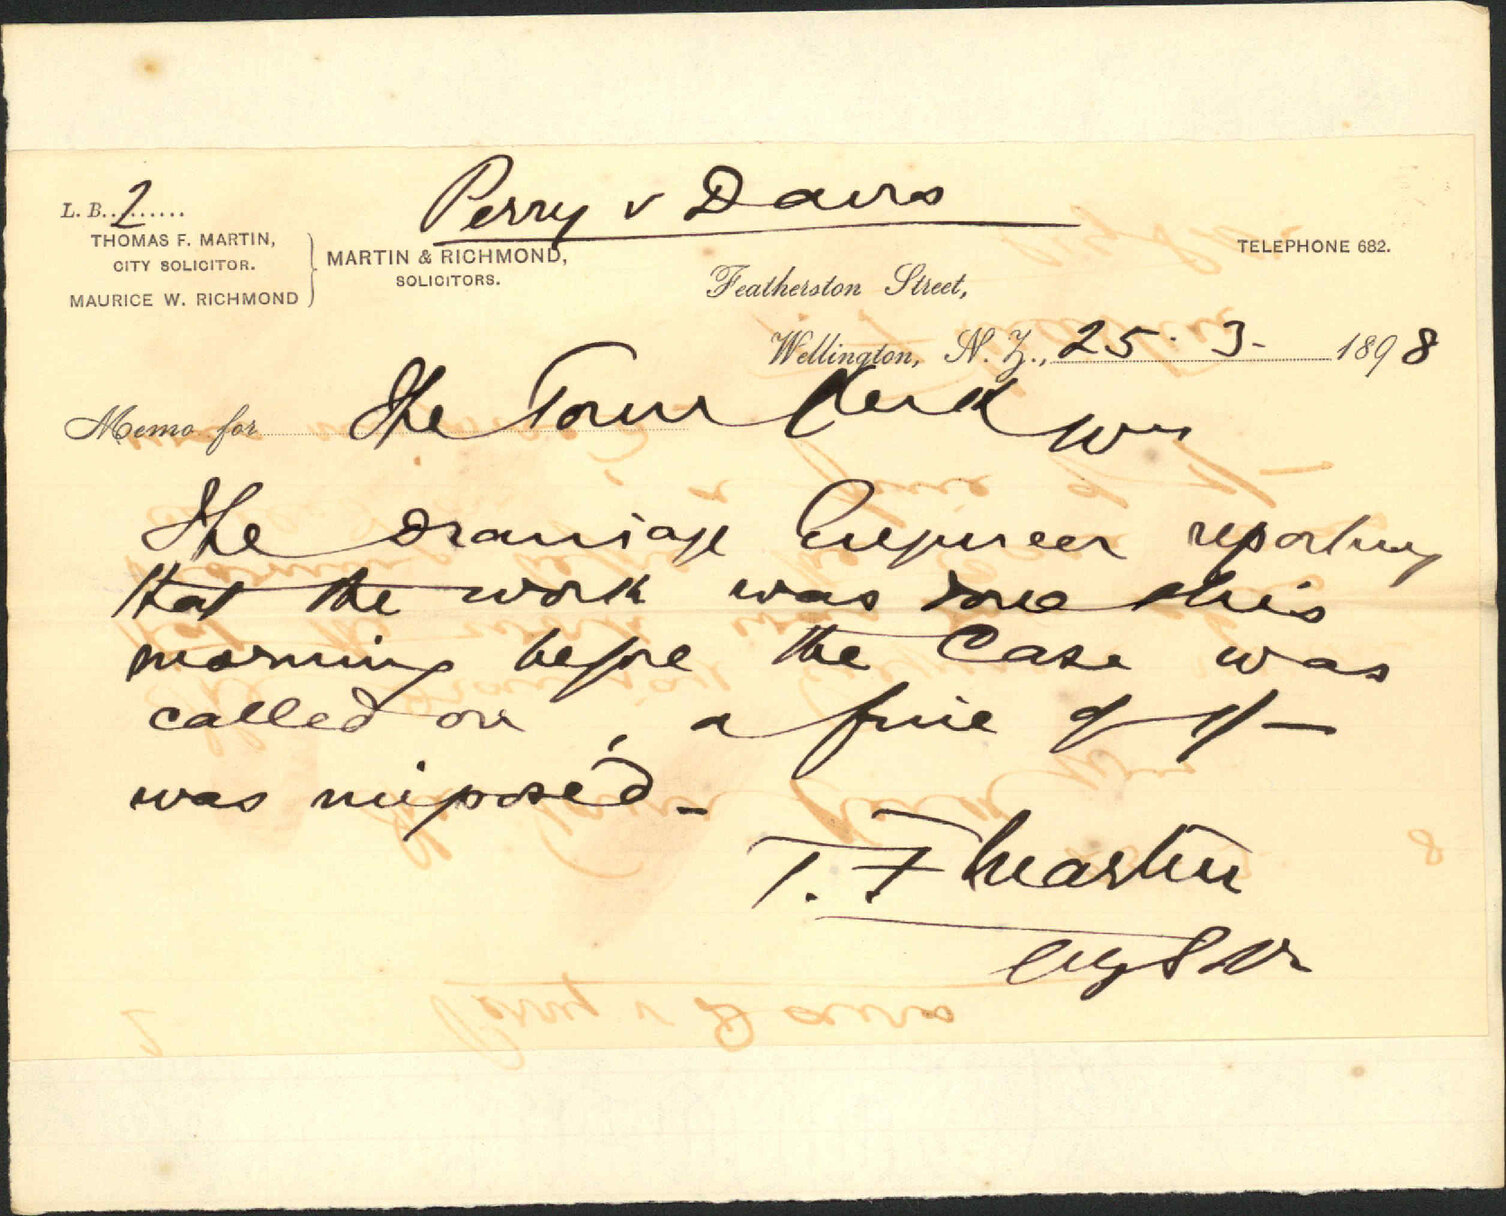 Perry v Davis
L. B. 2
THOMAS F. MARTIN,
CITY SOLICITOR.
MAURICE W. RICHMOND
MARTIN & RICHMOND,
SOLICITORS.
TELEPHONE 682.
Featherston Street,
Wellington, N. Z., 25. 3. 1898
Memo for The Town Clerk Wn
The Drainage Engineer reporting
that the work was done this
morning before the Case was
called on, a fine of 1/-
was imposed -
T. F. Martin
City Solr